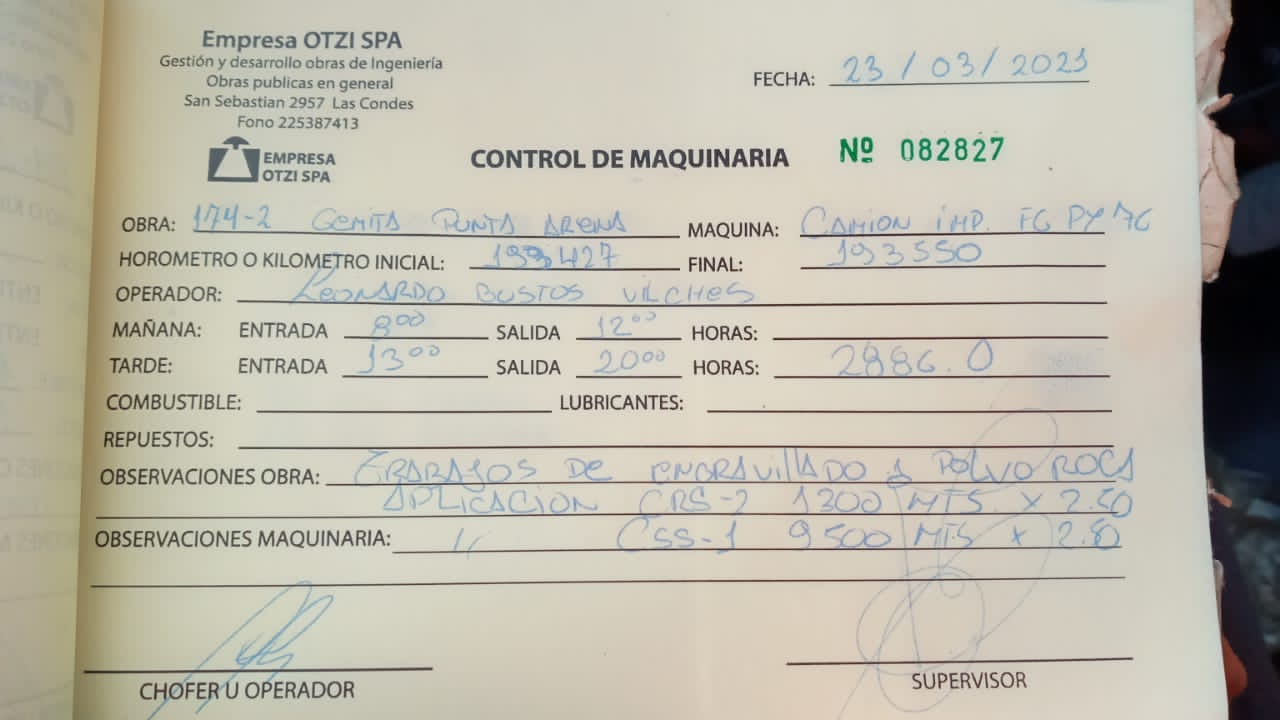 Empresa OTZI SPA
Gestión y desarrollo obras de Ingeniería
Obras publicas en general
San Sebastian 2957 Las Condes
Fono 225387413
EMPRESA
OTZI SPA
FECHA: 23 / 03 / 2021
CONTROL DE MAQUINARIA Nº 082827
OBRA: 174-2 Gemita Punta Arena MAQUINA: Camion imp. FG PY 76
HOROMETRO O KILOMETRO INICIAL: 193427 FINAL: 193550
OPERADOR: Leonardo Bustos Vilches
MAÑANA: ENTRADA 8:00 SALIDA 12:00 HORAS:
TARDE: ENTRADA 13:00 SALIDA 20:00 HORAS: 2886.0
COMBUSTIBLE: LUBRICANTES:
REPUESTOS:
OBSERVACIONES OBRA: Trabajos de engravillado y Polvo Roca
Aplicacion CRS-2 1300 MTS. x 2.50
OBSERVACIONES MAQUINARIA: 11 CSS-1 9500 MTS x 2.80
CHOFER U OPERADOR SUPERVISOR